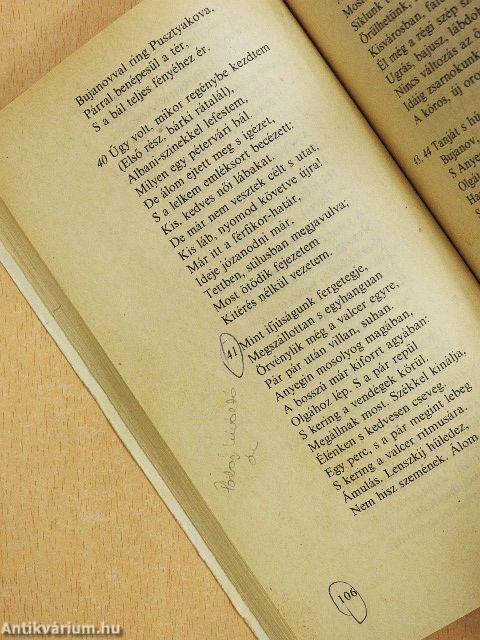 Bujanovval ring Pusztyakova,
Párral benépesül a tér,
S a bál teljes fényéhez ér.
40 Úgy volt, mikor regénybe kezdtem
(Első rész, bárki rátalál),
Albani-színekkel lefestem,
Milyen egy pétervári bál.
De álom ejtett meg s igézet,
S a lelkem emléksort becézett:
Kis, kedves női lábakat.
De már nem vesztek célt s utat,
Kis láb, nyomod követve újra!
Már itt a férfikor-határ,
Ideje józanodni már,
Tettben, stílusban megjavulva;
Most ötödik fejezetem
Kitérés nélkül vezetem.
41 Mint ifjúságunk fergetegje,
Megszállottan s egyhanguan
Örvénylik még a valcer egyre,
Pár pár után villan, suhan.
Anyegin mosolyog magában,
A bosszú már kiforrt agyában:
Olgához lép. S a pár repül
S kering a vendégek körül.
Megállnak most. Székkel kínálja,
Élénken s kedvesen cseveg.
Egy perc, s a pár megint lebeg
S kering a valcer ritmusára.
Ámulás. Lenszkij hüledez,
Nem hisz szemének. Álom
106
Siklunk t
Örülhetünk,
Kisvárosban, faró
Él még a régi szép sz
Ugrás, bajusz, lábdo
Nincs változás az ö
Idáig zsarnokunk
A kóros, új oro
43. 44 Tanját s hú
Bujanov,
S Anye
Olgá
Ha
Antikvárium.hu